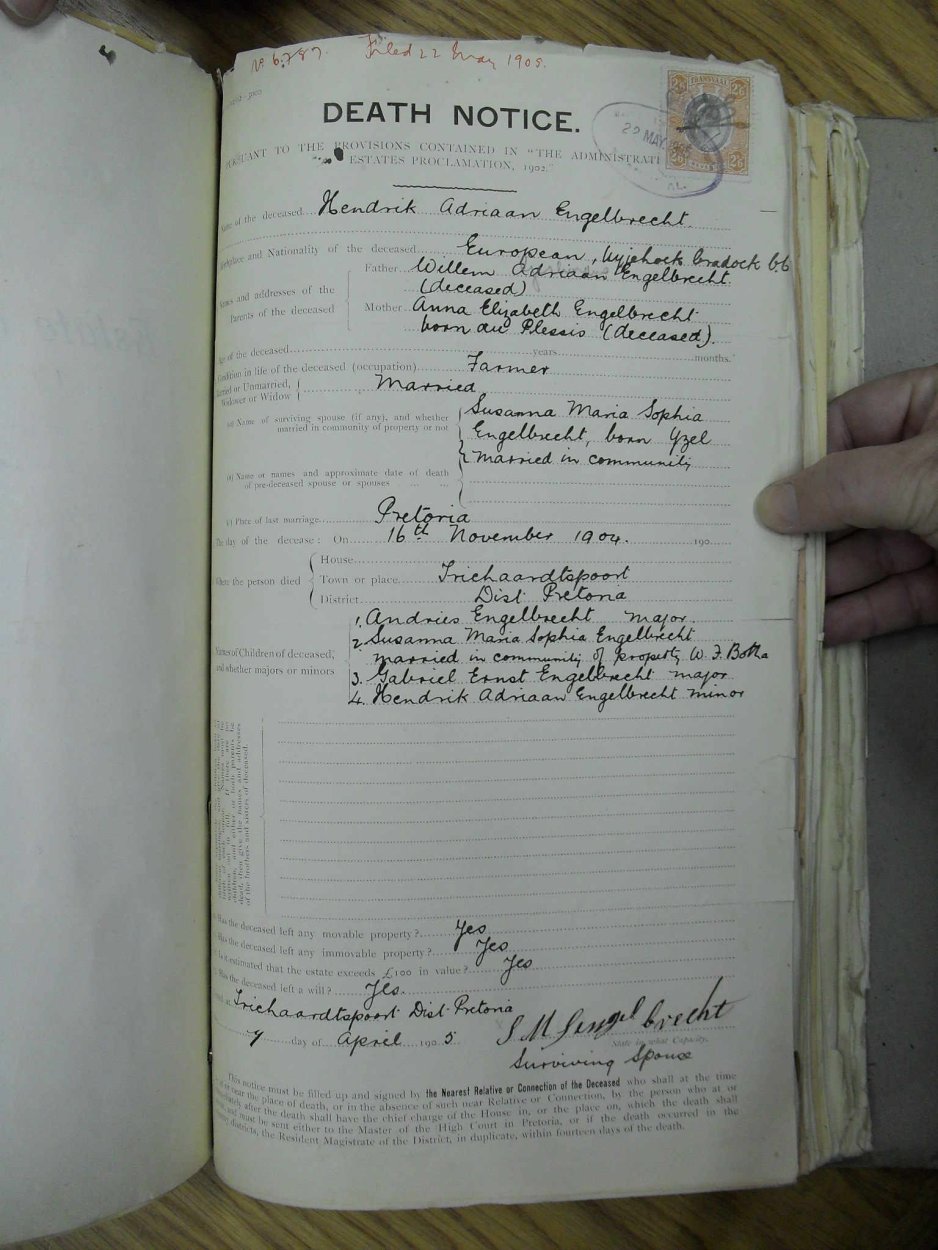 No 6787. Filed 22 May 1905.
DEATH NOTICE.
TRANSVAAL
2/6 2/6
2/6 2/6
22 MAY
PURSUANT TO THE PROVISIONS CONTAINED IN "THE ADMINISTRATI
ESTATES PROCLAMATION, 1902."
Name of the deceased Hendrik Adriaan Engelbrecht.
Birthplace and Nationality of the deceased European, Cradock
Names and addresses of the Parents of the deceased
Father Willem Adriaan Engelbrecht.
(deceased)
Mother Anna Elizabeth Engelbrecht
born du Plessis (deceased).
Age of the deceased years months.
Condition in life of the deceased (occupation) Farmer
Married or Unmarried, Married
Widower or Widow
(a) Name of surviving spouse (if any), and whether
married in community of property or not
Susanna Maria Sophia
Engelbrecht, born Yzel
married in community
(b) Name or names and approximate date of death
of pre-deceased spouse or spouses
(c) Place of last marriage Pretoria
The day of the decease: On 16th November 1904. 190
Where the person died
House
Town or place Trichaardtspoort
District Dist Pretoria
Names of Children of deceased,
and whether majors or minors
1. Andries Engelbrecht major.
2. Susanna Maria Sophia Engelbrecht
married in community of property W. J. Botha
3. Gabriel Ernst Engelbrecht major
4. Hendrik Adriaan Engelbrecht minor
children, and either or both parents be
dead, then give the names and addresses
of the brothers and sisters of deceased.
Has the deceased left any movable property? Yes
Has the deceased left any immovable property? Yes
Is it estimated that the estate exceeds £100 in value? Yes
Has the deceased left a will? Yes.
Trichaardtspoort Dist Pretoria
7 day of April 190 5. S M S Engelbrecht
State in what Capacity.
Surviving Spouse
This notice must be filled up and signed by the Nearest Relative or Connection of the Deceased who shall at the time
or near the place of death, or in the absence of such near Relative or Connection, by the person who at or
immediately after the death shall have the chief charge of the House in, or the place on, which the death shall
and must be sent either to the Master of the High Court in Pretoria, or if the death occurred in the
districts, the Resident Magistrate of the District, in duplicate, within fourteen days of the death.